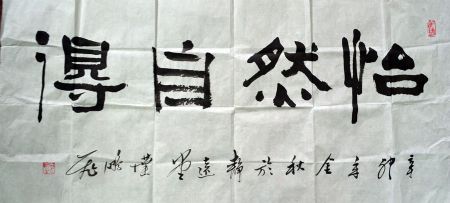 怡然自得
辛卯年金秋於靜遠堂